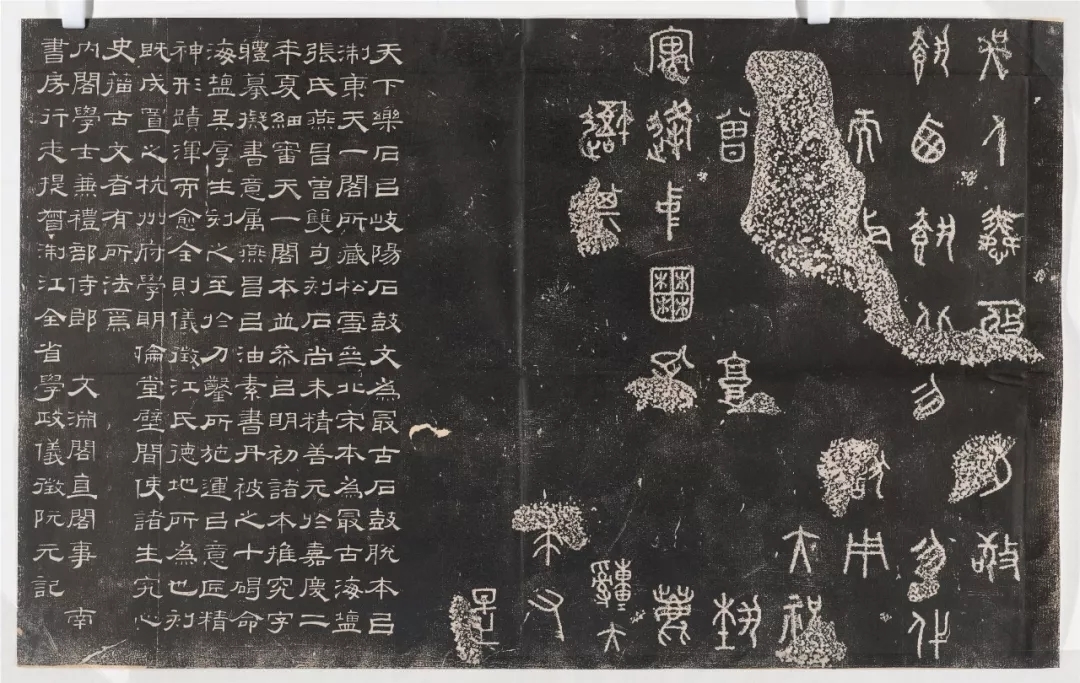 吳人憐亟敬
載西載北勿勿代
而出獻用
大祝
曾
寓逢中囿孔
其大
求又
是
天下樂石㠯岐陽石鼓文為㝡古石鼓脫本㠯
浙東天一閣所藏松雪齋北宋本為㝡古海鹽
張氏燕昌曾雙勾刻石尚未精善元於嘉慶二
年夏細審天一閣本並參㠯明初諸本推究字
軆摹擬書意屬燕昌㠯油素書丹被之十碣命
海鹽吳厚生刻之至於刀鑿所施運㠯意匠精
神形蹟渾而愈全則儀徵江氏德地所為也刻
既成置之杭州府學明倫堂壁間使諸生究心
史籀古文者有所法焉
內閣學士兼禮部侍郎 文淵閣直閣事 南
書房行走提督浙江全省學政儀徵阮元記